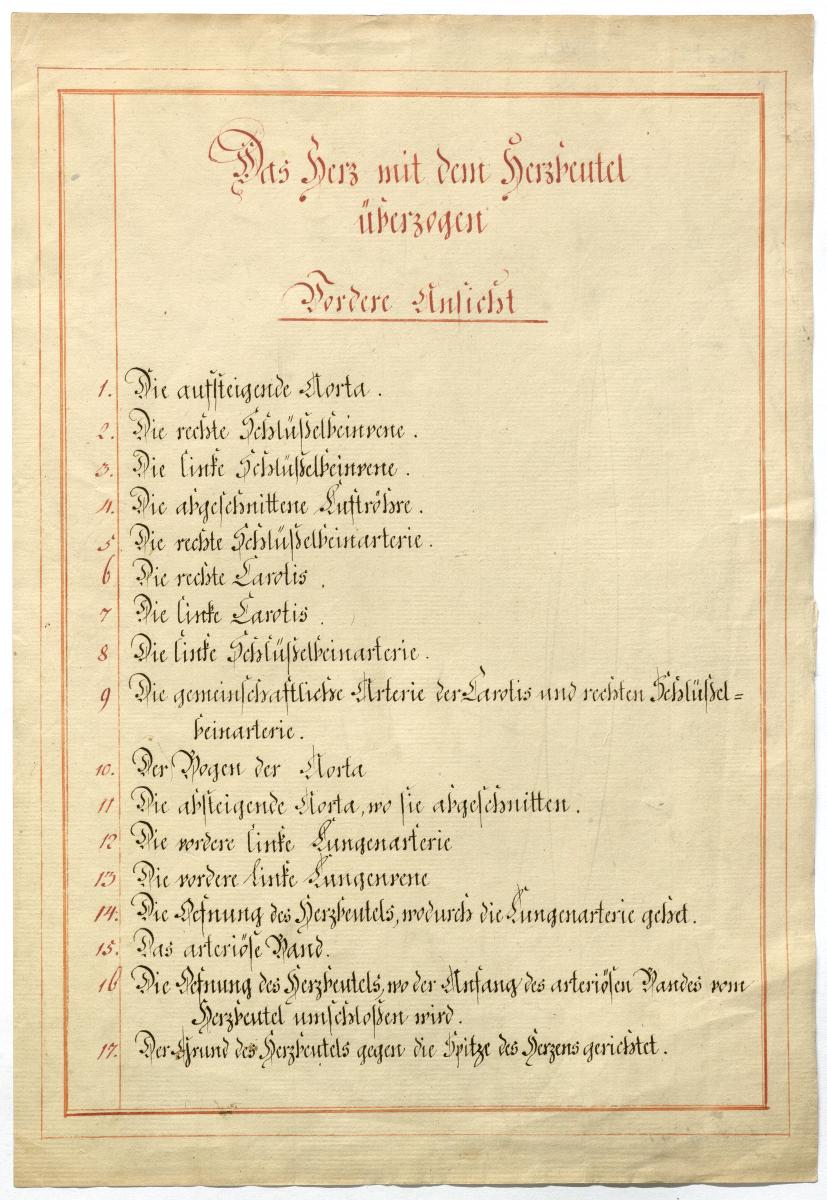 Das Herz mit dem Herzbeutel
überzogen
Vordere Ansicht
1. Die aufsteigende Aorta.
2. Die rechte Schlüßelbeinvene.
3. Die linke Schlüßelbeinvene.
4. Die abgeschnittene Luftröhre.
5. Die rechte Schlüßelbeinarterie.
6 Die rechte Carotis.
7 Die linke Carotis.
8 Die linke Schlüßelbeinarterie.
9 Die gemeinschaftliche Arterie der Carotis und rechten Schlüßel=
beinarterie.
10. Der Bogen der Aorta
11 Die absteigende Aorta, wo sie abgeschnitten.
12 Die vordere linke Lungenarterie
13 Die vordere linke Lungenvene
14. Die Oefnung des Herzbeutels, wodurch die Lungenarterie gehet.
15. Das arteriöse Band.
16 Die Oefnung des Herzbeutels, wo der Anfang des arteriösen Bandes vom
Herzbeutel umschloßen wird.
17. Der Grund des Herzbeutels gegen die Spitze des Herzens gerichtet.